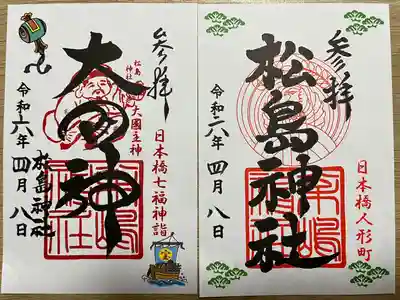 参拝
松島
神社
大国主神
大国神
日本橋七福神詣
令和六年四月八日
松島神社
参拝
松島神社
日本橋人形町
令和六年四月八日